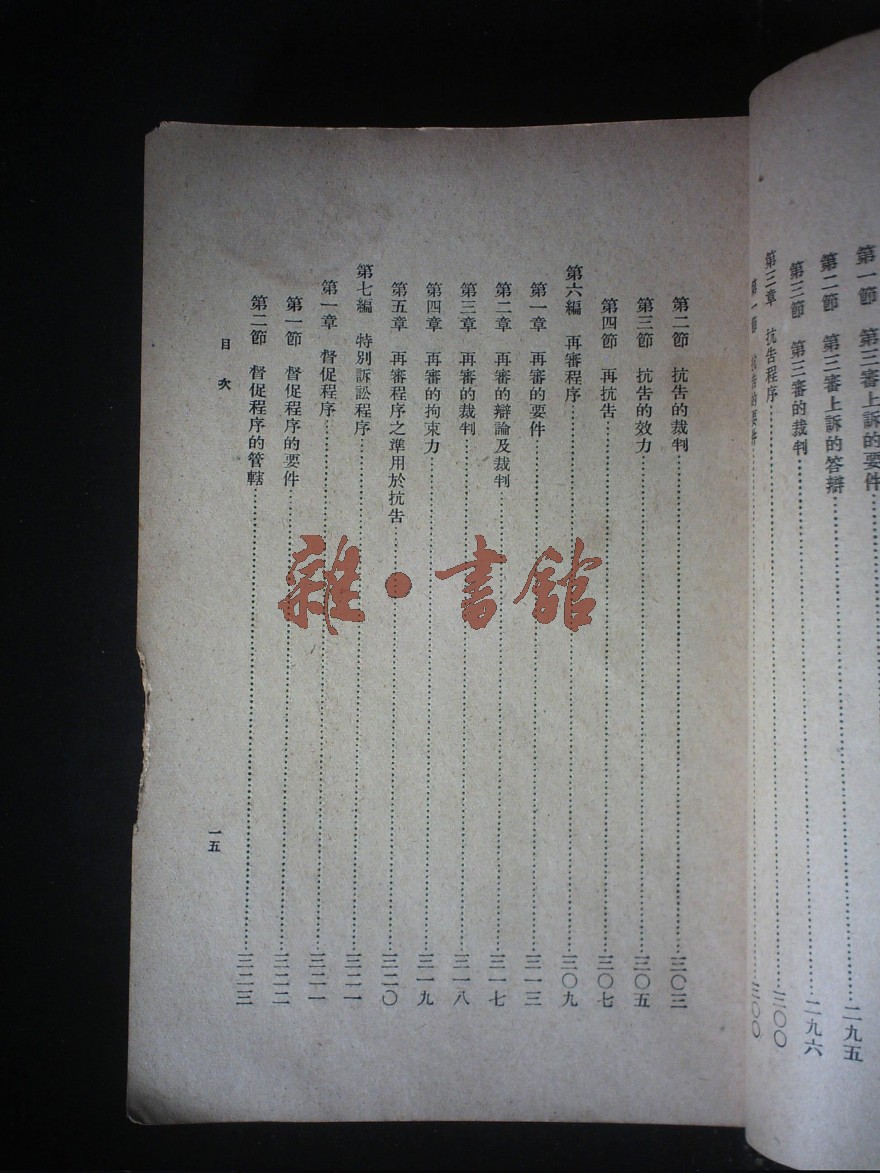 第一節　第三審上訴的要件
第二節　第三審上訴的答辯……二九五
第三節　第三審的裁判……二九六
第三章　抗告程序……三〇〇
第一節　抗告的要件……三〇〇
第二節　抗告的裁判……三〇三
第三節　抗告的效力……三〇五
第四節　再抗告……三〇七
第六編　再審程序……三〇九
第一章　再審的要件……三一三
第二章　再審的辯論及裁判……三一七
第三章　再審的裁判……三一八
第四章　再審的拘束力……三一九
第五章　再審程序之準用於抗告……三二〇
第七編　特別訴訟程序……三二一
第一章　督促程序……三二一
第一節　督促程序的要件……三二二
第二節　督促程序的管轄……三二三
目次
一五
雜·書館